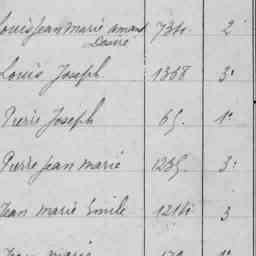 Louis Jean Marie Amand 734. 2°
Désiré
Louis Joseph 1368 3°
Pierre Joseph 65. 1°
Pierre Jean Marie 1235. 3°
Jean Marie Emile 1214. 3
Jean Marie 1°